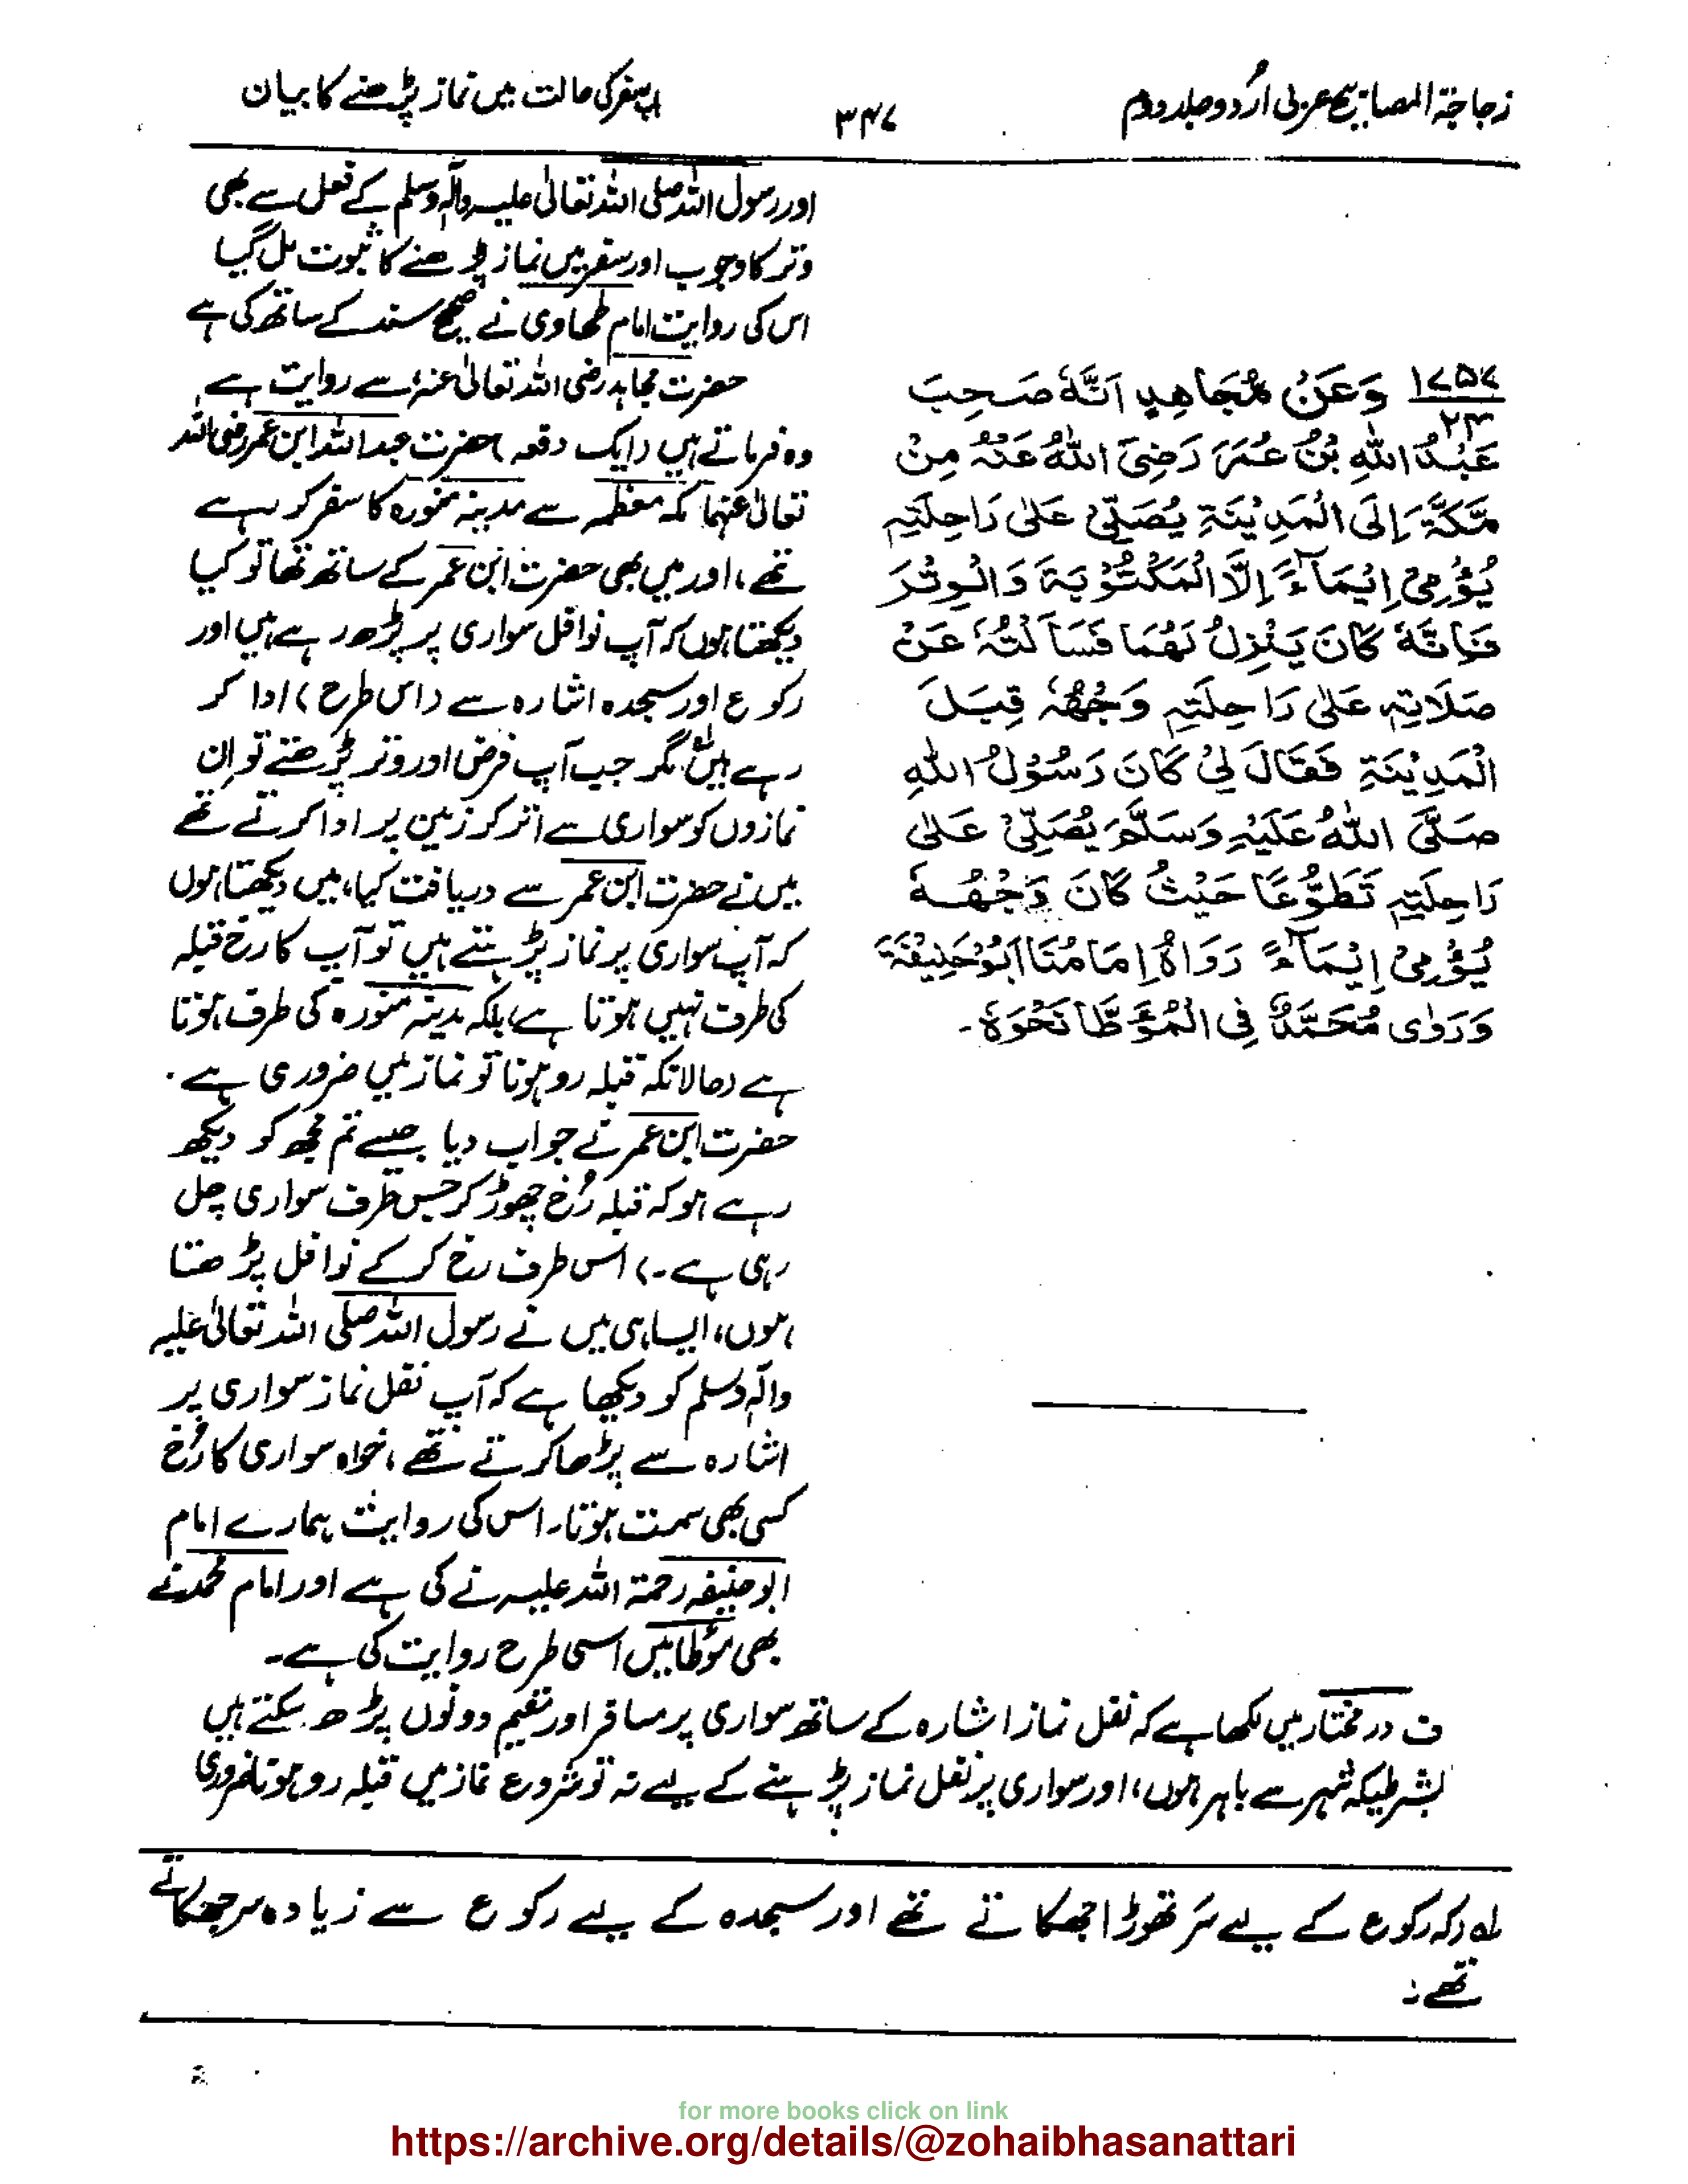 زجاجۃ المصابیح عربی اُردو جلد دوم
۳۴۷
باب سفر کی حالت میں نماز پڑھنے کا بیان
۱۷۵۷
۲۳
وَعَنْ مُجَاهِدٍ اَنَّهٗ صَحِبَ
عَبْدُ اللّٰهِ بْنُ عُمَرَ رَضِيَ اللّٰهُ عَنْهُ مِنْ
مَّكَّةَ اِلَى الْمَدِيْنَةِ يُصَلِّيْ عَلٰى رَاحِلَتِهٖ
يُؤْمِئُ اِيْمَآءً اِلَّا الْمَكْتُوْبَةَ وَالْوِتْرَ
فَاِنَّهٗ كَانَ يَنْزِلُ لَهُمَا فَسَاَلْتُهٗ عَنْ
صَلَاتِهٖ عَلٰى رَاحِلَتِهٖ وَجْهُهٗ قِبَلَ
الْمَدِيْنَةِ فَقَالَ لِيْ كَانَ رَسُوْلُ اللّٰهِ
صَلَّى اللّٰهُ عَلَيْهِ وَسَلَّمَ يُصَلِّيْ عَلٰى
رَاحِلَتِهٖ تَطَوُّعًا حَيْثُ كَانَ وَجْهُهٗ
يُؤْمِئُ اِيْمَآءً رَوَاهُ اِمَامُنَا اَبُوْحَنِيْفَةَ
وَرَوٰى مُحَمَّدٌ فِي الْمُؤَطَّا نَحْوَهٗ۔
اور رسول اللہ صلی اللہ تعالیٰ علیہ وآلہ وسلم کے فعل سے بھی
وتر کا وجوب اور سفر میں نماز پڑھنے کا ثبوت مل گیا
اس کی روایت امام طحاوی نے صحیح سند کے ساتھ کی ہے
حضرت مجاہد رضی اللہ تعالیٰ عنہ سے روایت ہے
وہ فرماتے ہیں (ایک دفعہ) حضرت عبداللہ ابن عمر رضی اللہ
تعالیٰ عنہما مکہ معظمہ سے مدینہ منورہ کا سفر کر رہے
تھے، اور میں بھی حضرت ابن عمر کے ساتھ تھا تو کیا
دیکھتا ہوں کہ آپ نوافل سواری پر پڑھ رہے ہیں اور
رکوع اور سجدہ اشارہ سے (اس طرح) ادا کر
رہے ہیں مگر جب آپ فرض اور وتر پڑھتے تو ان
نمازوں کو سواری سے اتر کر زمین پر ادا کرتے تھے
میں نے حضرت ابن عمر سے دریافت کیا، میں دیکھتا ہوں
کہ آپ سواری پر نماز پڑہتے ہیں تو آپ کا رخ قبلہ
کی طرف نہیں ہوتا ہے، بلکہ مدینہ منورہ کی طرف ہوتا
ہے (حالانکہ قبلہ رو ہونا تو نماز میں ضروری ہے۔
حضرت ابن عمر نے جواب دیا جیسے تم مجھ کو دیکھ
رہے ہو کہ قبلہ رُخ چھوڑ کر جس طرف سواری چل
رہی ہے۔) اس طرف رخ کر کے نوافل پڑھتا
ہوں، ایسا ہی میں نے رسول اللہ صلی اللہ تعالیٰ علیہ
وآلہ وسلم کو دیکھا ہے کہ آپ نفل نماز سواری پر
اشارہ سے پڑھا کرتے تھے، خواہ سواری کا رُخ
کسی بھی سمت ہوتا۔ اس کی روایت ہمارے امام
ابو حنیفہ رحمۃ اللہ علیہ نے کی ہے اور امام محمد نے
بھی مؤطا میں اسی طرح روایت کی ہے۔
ف در مختار میں لکھا ہے کہ نفل نماز اشارہ کے ساتھ سواری پر مسافر اور مقیم دونوں پڑھ سکتے ہیں
بشرطیکہ شہر سے باہر ہوں، اور سواری پر نفل نماز پڑہنے کے لیے نہ تو شروع نماز میں قبلہ رو ہونا ضروری
لہ (کہ رکوع کے لیے سَر تھوڑا جھکاتے تھے اور سجدہ کے لیے رکوع سے زیادہ سر جھکاتے
تھے:
for more books click on link
https://archive.org/details/@zohaibhasanattari